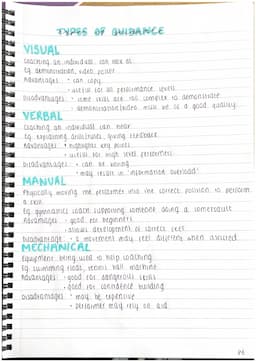 TYPES OF GUIDANCE
VISUAL
Coaching an individual can look at
Eg demonstration, video, poster
Advantages: • can copy
• useful for all performance levels
Disadvantages: • some skills are too complex to demonstrate
• demonstration/video must be of a good quality
VERBAL
Coaching an individual can hear
Eg explaining drills/tasks, giving feedback
Advantages: • highlights key points
• useful for high level performers
Disadvantages: • can be boring
• may result in 'information overload'
MANUAL
Physically moving the performer into the correct position to perform
a skill
Eg gymnastics coach supporting someone doing a somersault
Advantages: • good for beginners
• allows development of correct feel
Disadvantage: • a movement may feel different when assisted
MECHANICAL
Equipment being used to help coaching
Eg swimming float, tennis ball machine
Advantages: • good for dangerous skills
• good for confidence building
Disadvantages: • may be expensive
• performer may rely on aid